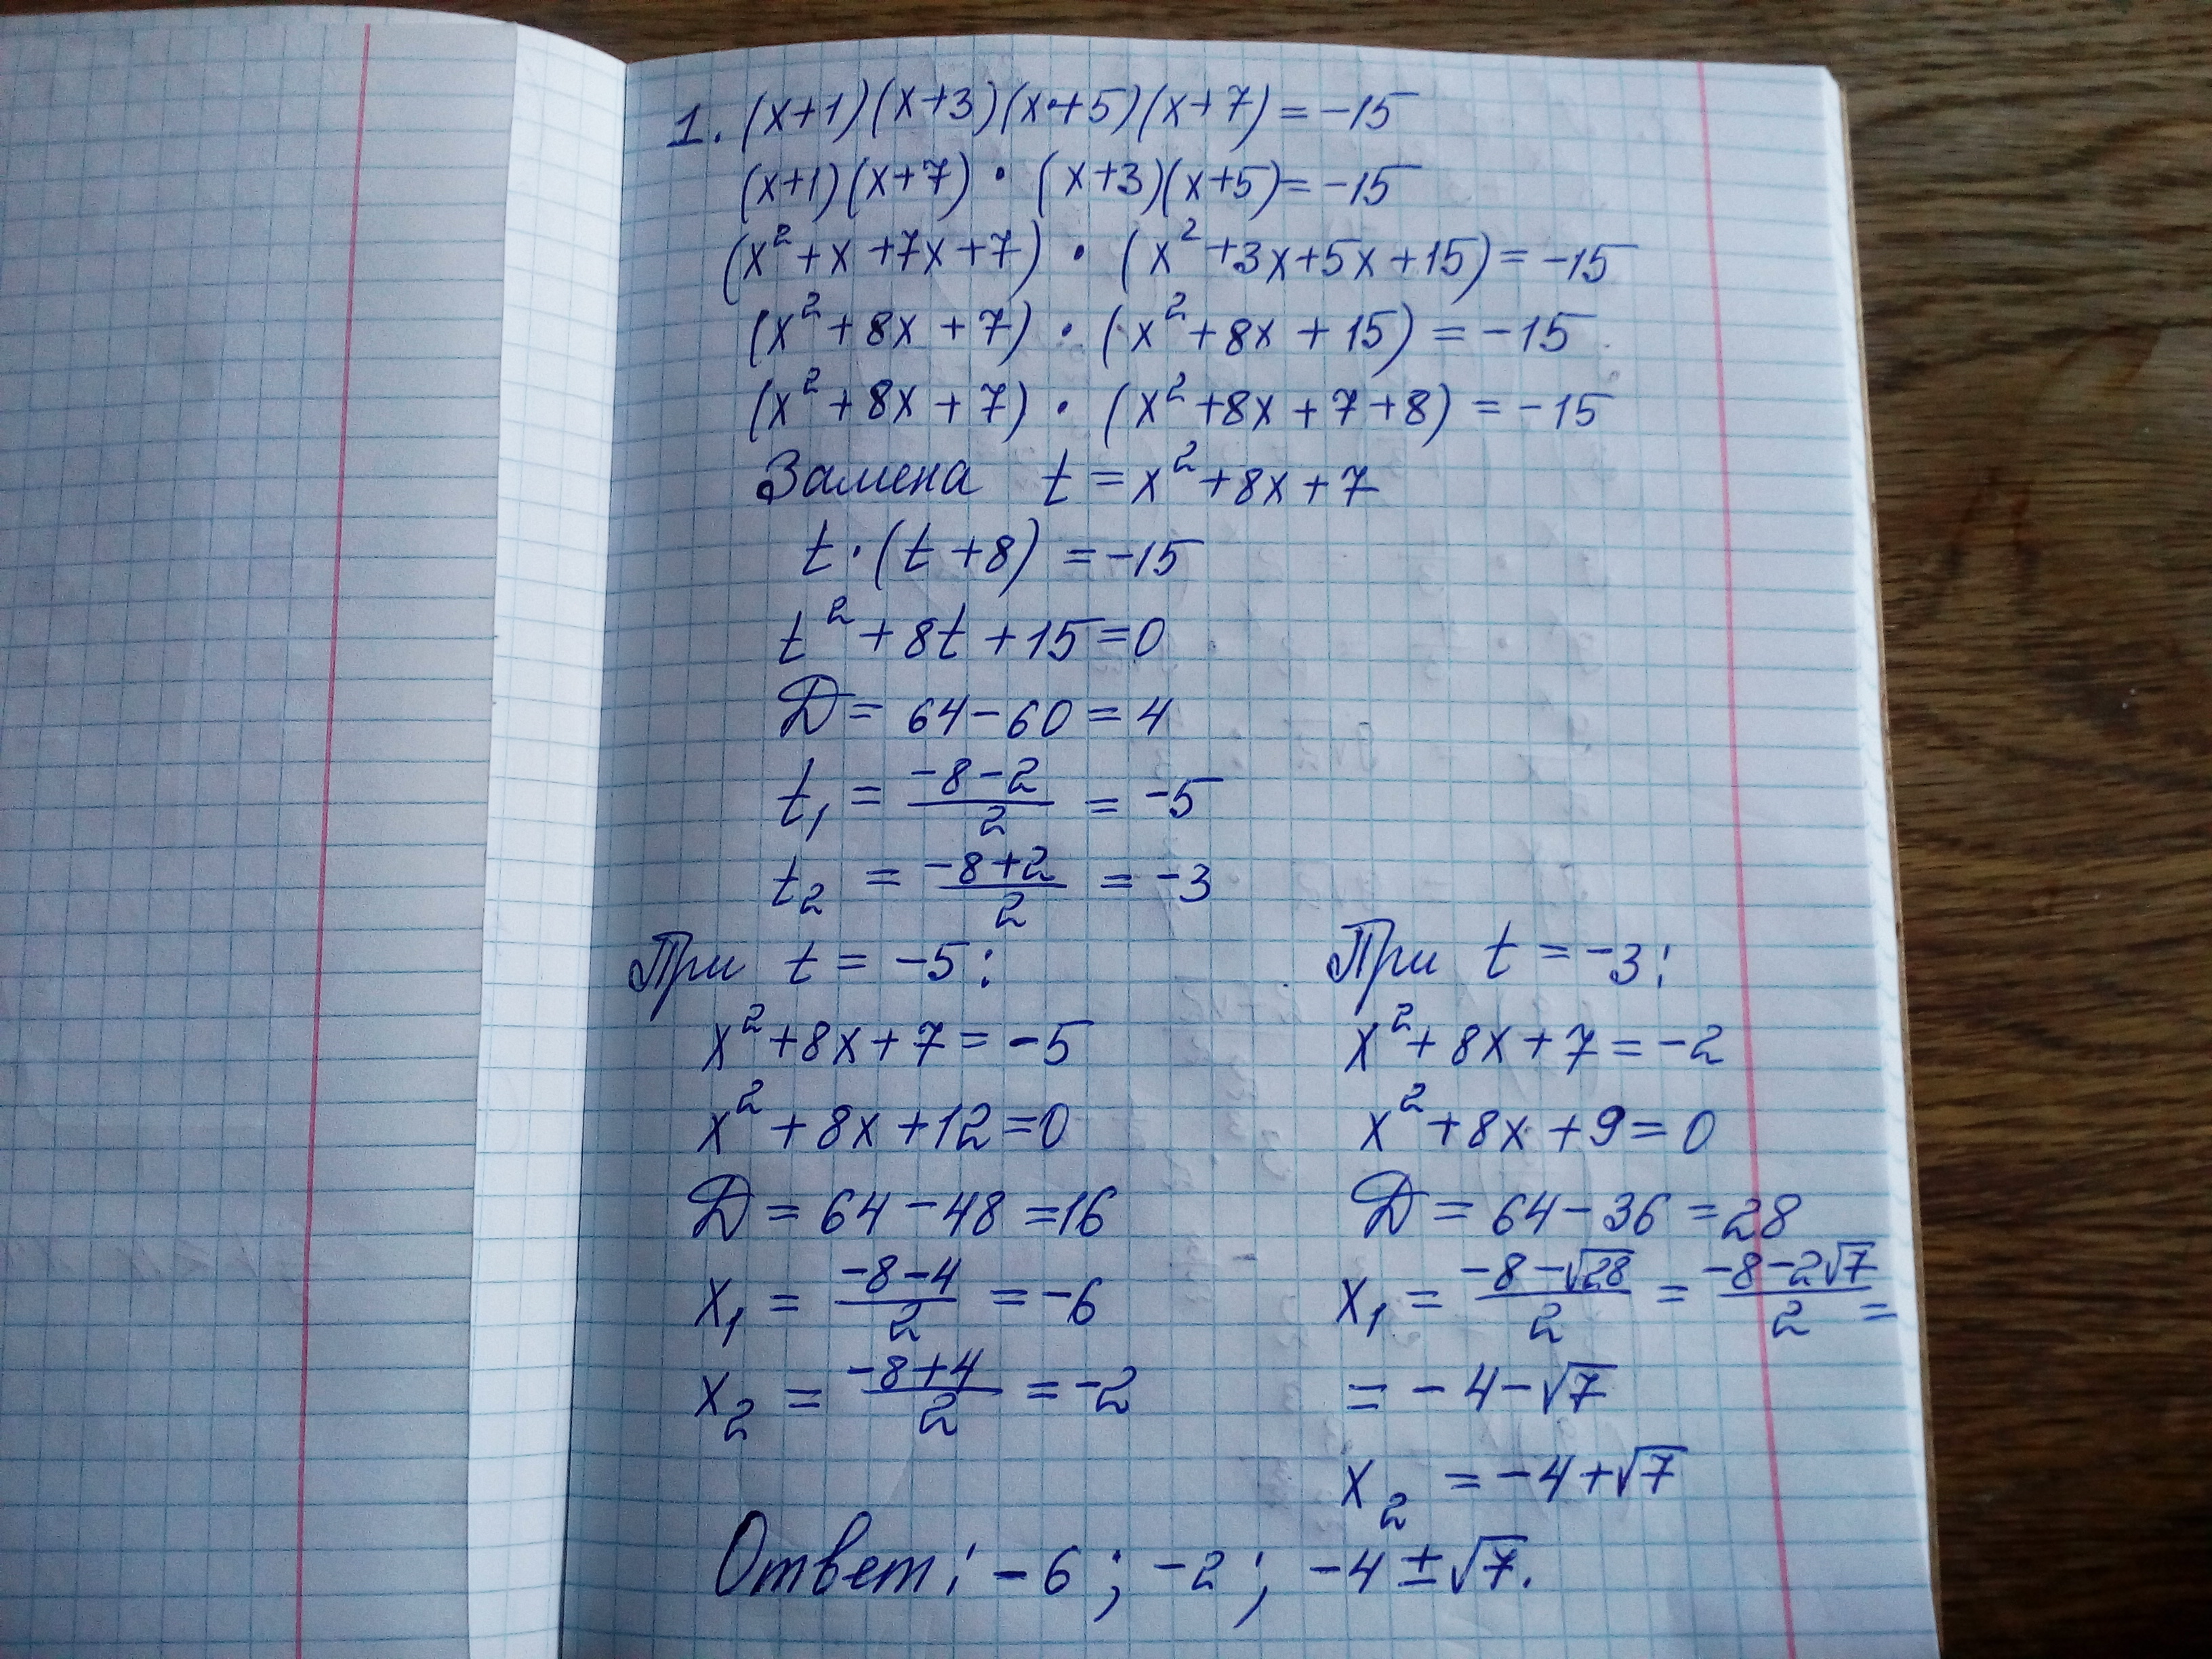 1. (x+1)(x+3)(x+5)(x+7)=-15
(x+1)(x+7) · (x+3)(x+5)=-15
(x²+x+7x+7) · (x²+3x+5x+15)=-15
(x²+8x+7) · (x²+8x+15)=-15
(x²+8x+7) · (x²+8x+7+8)=-15
Замена t=x²+8x+7
t·(t+8)=-15
t²+8t+15=0
Д=64-60=4
t₁ = (-8-2)/2 = -5
t₂ = (-8+2)/2 = -3
При t=-5:
x²+8x+7=-5
x²+8x+12=0
Д=64-48=16
x₁ = (-8-4)/2 = -6
x₂ = (-8+4)/2 = -2
При t=-3:
x²+8x+7=-2
x²+8x+9=0
Д=64-36=28
x₁ = (-8-√28)/2 = (-8-2√7)/2 =
= -4-√7
x₂ = -4+√7
Ответ: -6; -2; -4±√7.